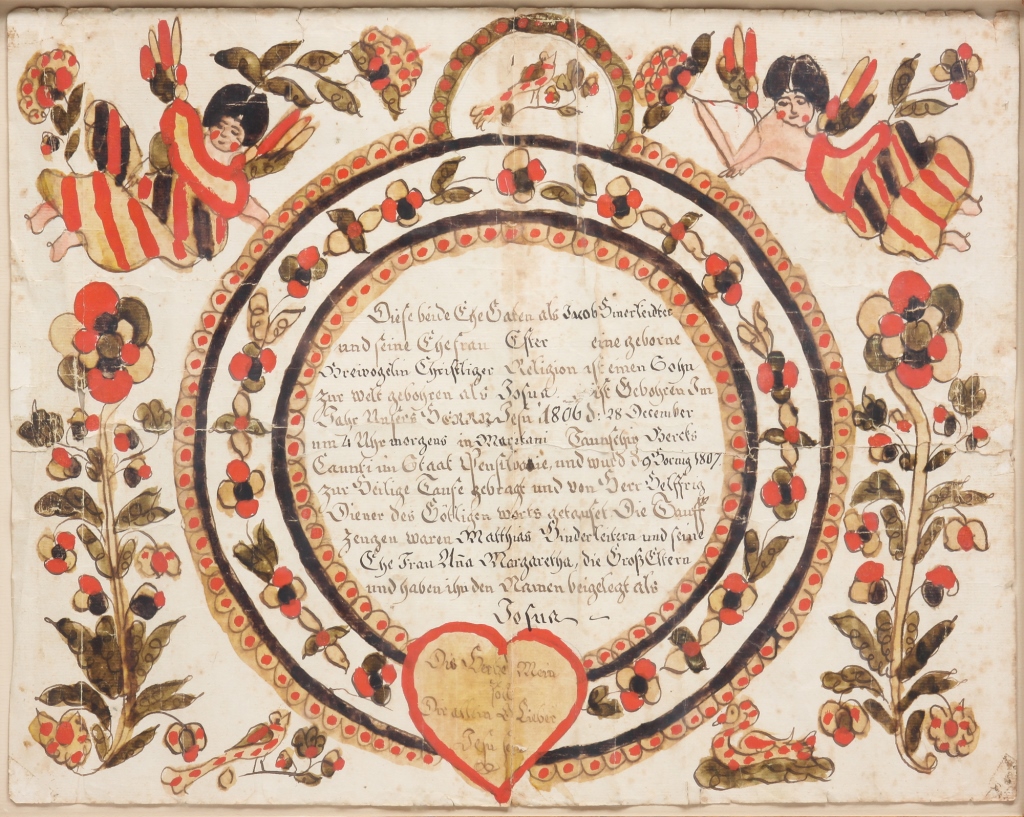 Diese beide Ehe Gaten als Jacob Binerleidter
und seine Ehefrau Ester eine geborne
Breivogelin Christliger Religion ist einen Sohn
zur welt gebohren als Josua ist Gebohren Im
Jahr Unsers Herrn Jesu 1806 d: 28 December
um 4 Uhr morgens in Maxetani Taunschip Bercks
Caunti im Staat Pensilvanie, und wurd d 9 1807
zur Heilige Taufe gebragt und von Herr Helffrig
Diener des Götligen worts getaufet Die Tauff
zeugen waren Matthias Binderleitern und seine
Ehe Frau Anna Margaretha, die Groß Eltern
und haben ihn den Namen beigelegt als
Josua
Dis Hertze Mein
Soll
Dir allein O Lieber
Jesu sein